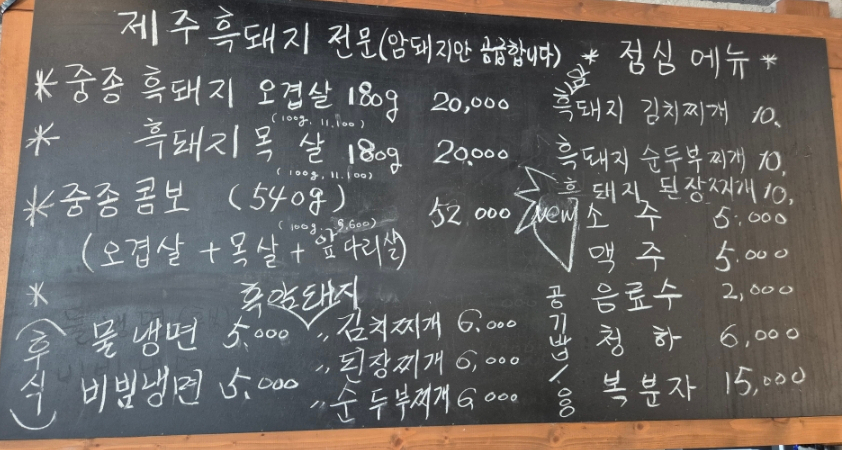 제주흑돼지 전문(암돼지만 공급합니다)
* 중종 흑돼지 오겹살 180g 20,000
(100g, 11,100)
* 흑돼지 목 살 180g 20,000
(100g, 11,100)
* 중종콤보 (540g) 52 000
(100g, 9,600)
(오겹살 + 목살 + 앞다리살)
*
(후식) 물냉면 5,000 〃김치찌개 6,000
비빔냉면 5,000 〃된장찌개 6,000
〃순두부찌개 6,000
* 점심 메뉴 *
흑돼지 김치찌개 10,
흑돼지 순두부찌개 10,
흑돼지 된장찌개 10,
new 소 주 5,000
맥 주 5,000
음료수 2,000
청 하 6,000
복분자 15,000
공기밥 1,00